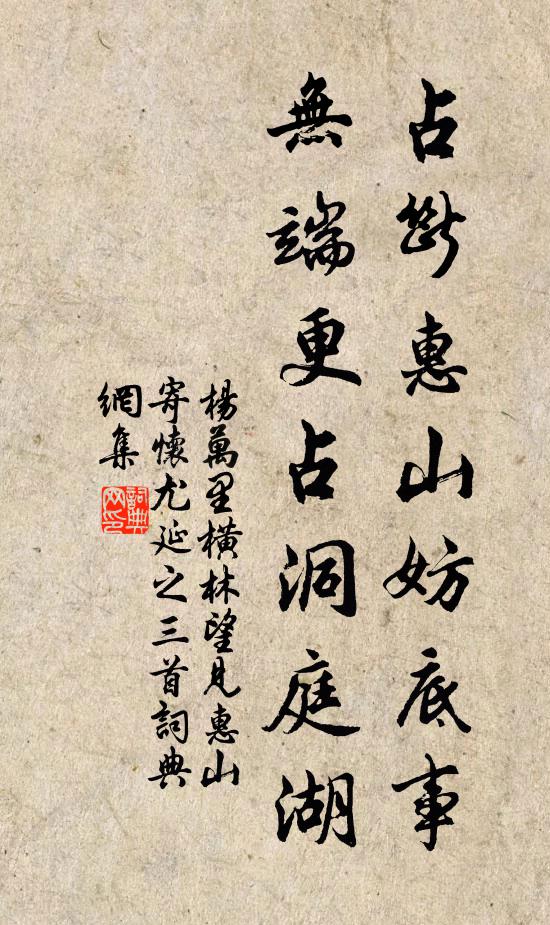 占斷惠山妨底事
無端更占洞庭湖
楊萬里橫林望見惠山
寄懷尤延之三首詞典
網集
詞典
网印